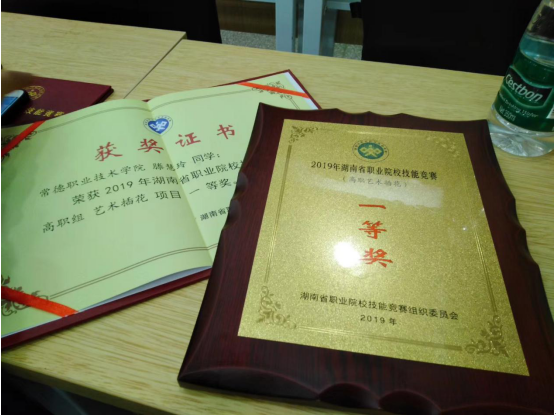 获奖证书
常德职业技术学院 滕慧玲 同学：
荣获 2019 年湖南省职业院校
高职组 艺术插花 项目 一 等奖
湖南省
2019年湖南省职业院校技能竞赛
（高职艺术插花）
一
等
奖
湖南省职业院校技能竞赛组织委员会
2019 年
Cestbon